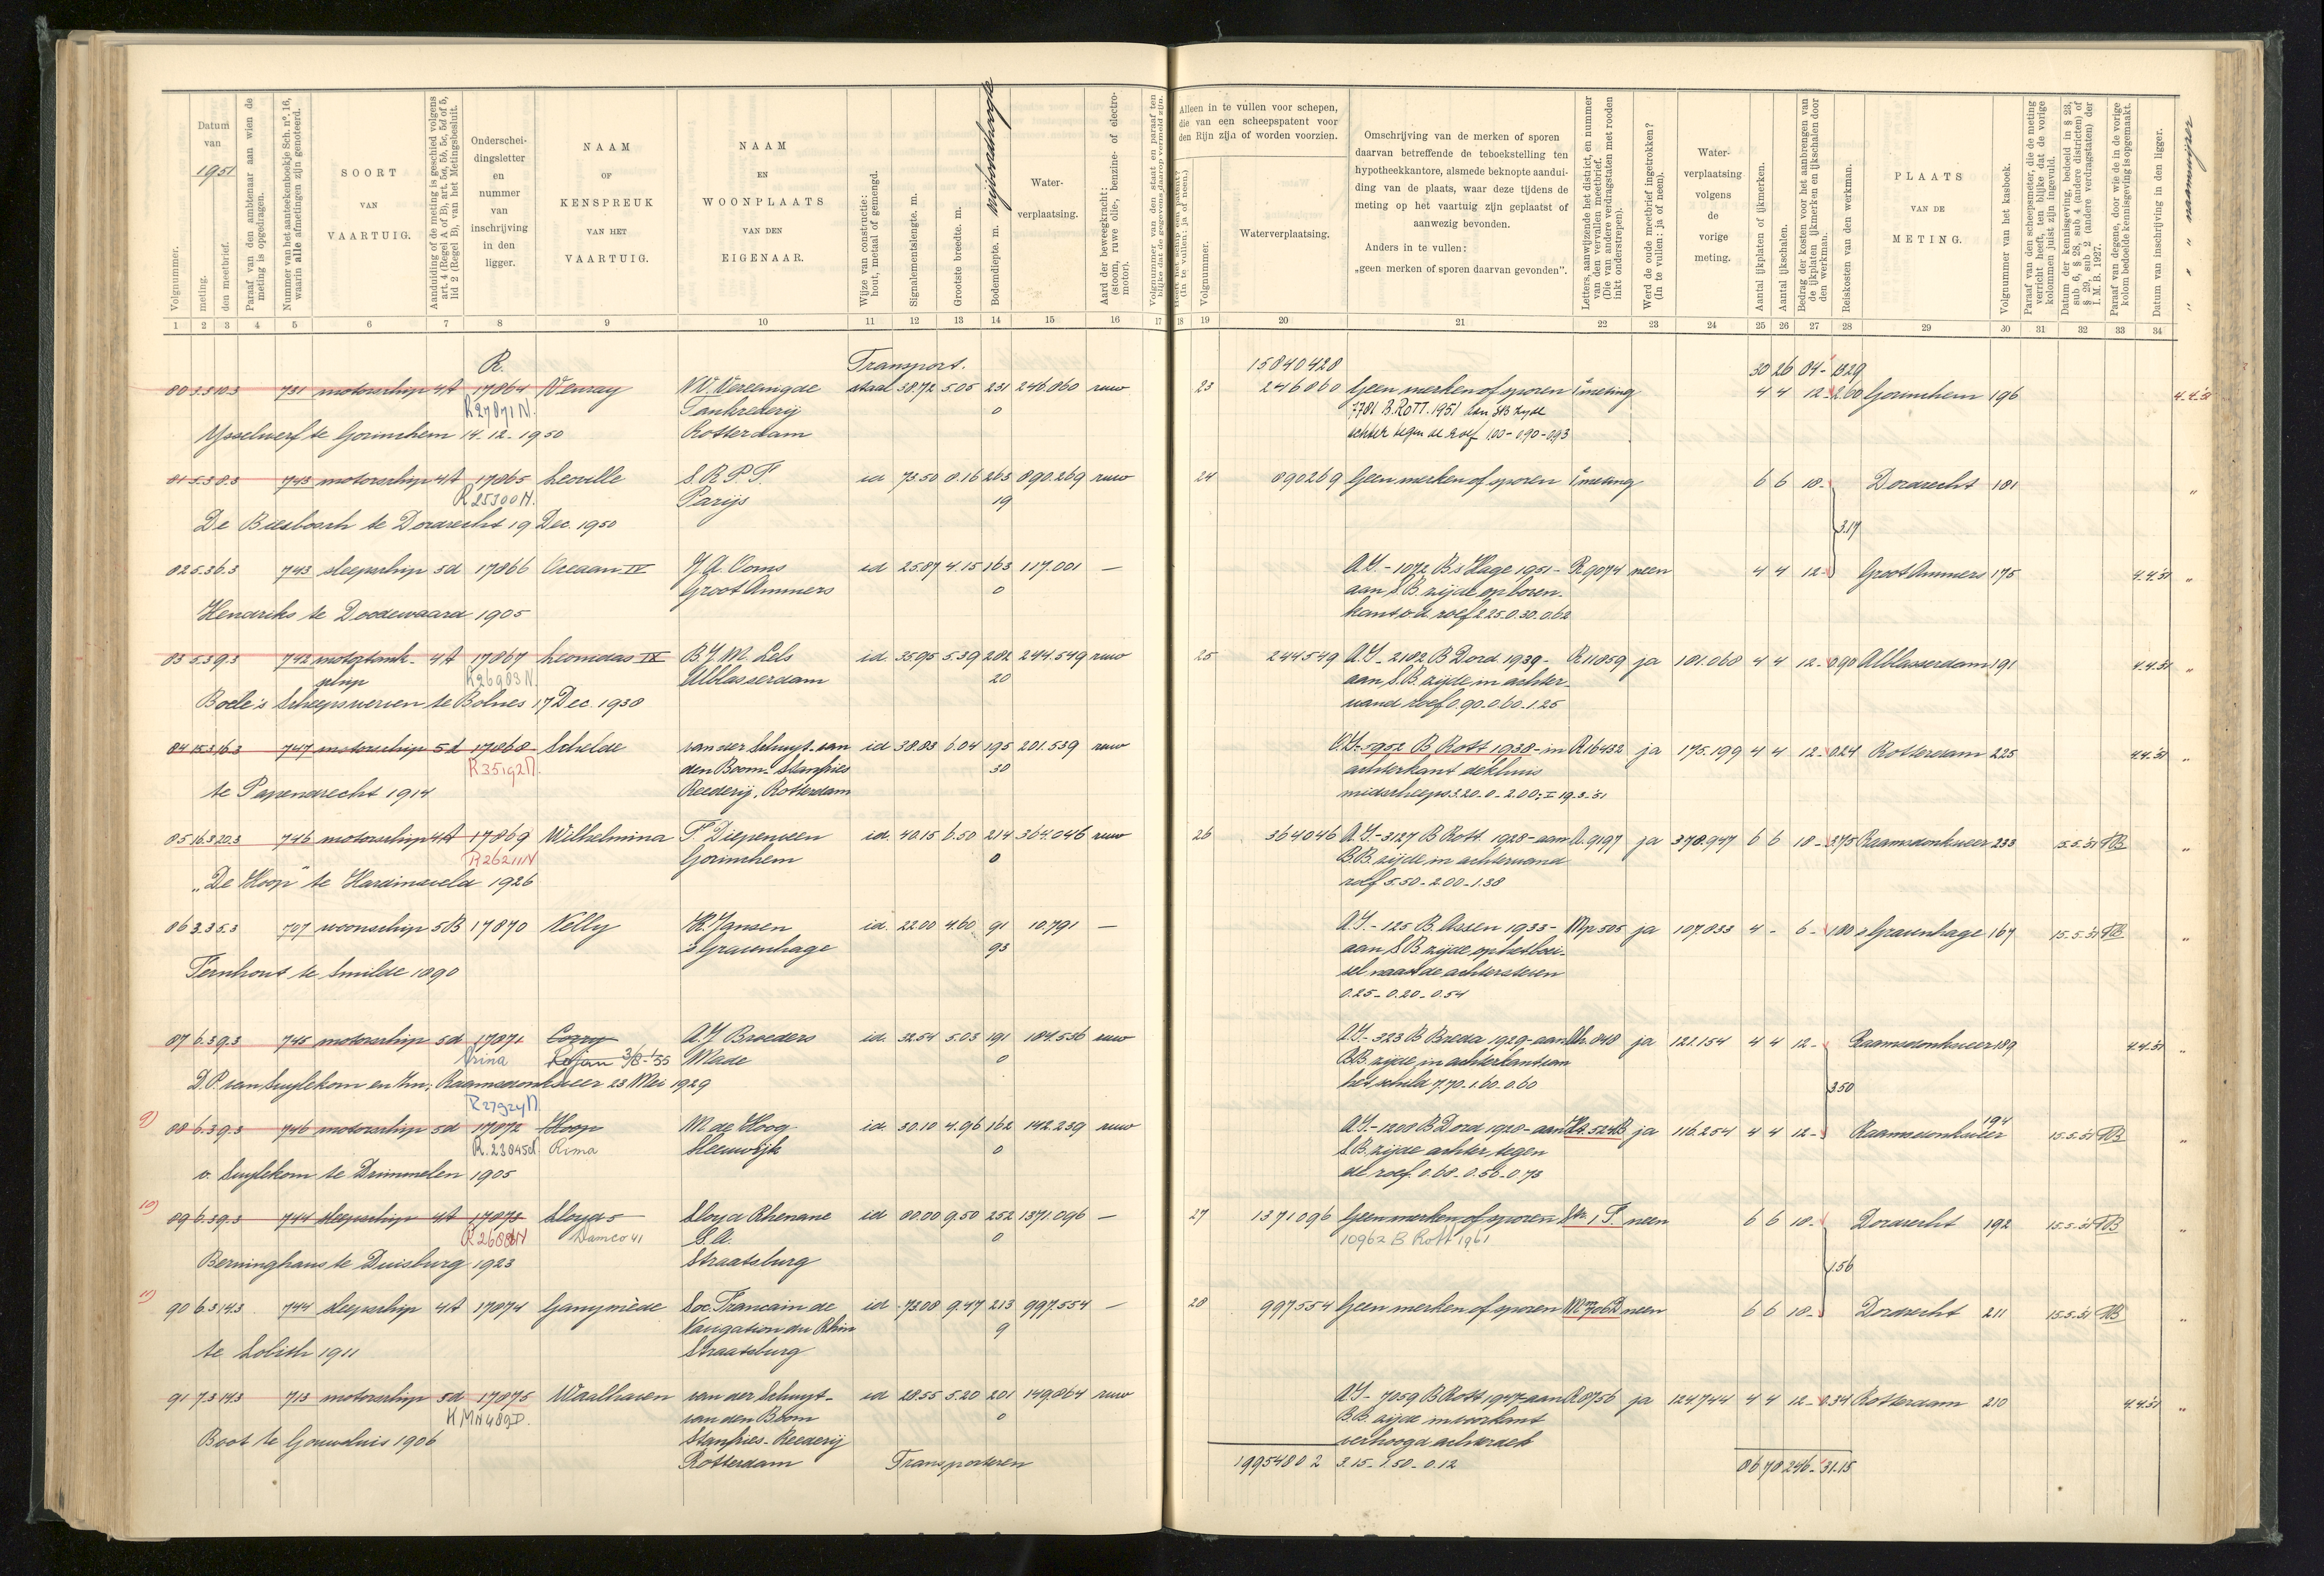 Volgnummer.
Datum van
1951
meting.
den meetbrief.
Paraaf van den ambtenaar aan wien de meting is opgedragen.
Nummer van het aanteekenboekje Sch. nº. 16, waarin alle afmetingen zijn genoteerd.
SOORT VAN VAARTUIG.
Aanduiding of de meting is geschied volgens art. 4 (Regel A of B), art. 5a, 5b, 5c, 5d of 5, lid 2 (Regel B), van het Metingsbesluit.
Onderscheidingsletter en nummer van inschrijving in den ligger.
NAAM OF KENSPREUK VAN HET VAARTUIG.
NAAM EN WOONPLAATS VAN DEN EIGENAAR.
Wijze van constructie: hout, metaal of gemengd.
Signalementslengte. m.
Grootste breedte. m.
Bodemdiepte. m. vrijboordhoogte
Waterverplaatsing.
Aard der beweegkracht: (stoom, ruwe olie-, benzine- of electromotor).
Alleen in te vullen voor schepen, die van een scheepspatent voor den Rijn zijn of worden voorzien.
Volgnummer.
Waterverplaatsing.
Omschrijving van de merken of sporen daarvan betreffende de teboekstelling ten hypotheekkantore, alsmede beknopte aanduiding van de plaats, waar deze tijdens de meting op het vaartuig zijn geplaatst of aanwezig bevonden.
Anders in te vullen:
„geen merken of sporen daarvan gevonden”.
Letters, aanwijzende het district, en nummer van den vervallen meetbrief. (Die van andere verdragstaten met rooden inkt onderstrepen).
Werd de oude meetbrief ingetrokken? (In te vullen: ja of neen).
Waterverplaatsing volgens de vorige meting.
Aantal ijkplaten of ijkmerken.
Aantal ijkschalen.
Bedrag der kosten voor het aanbrengen van de ijkplaten ijkmerken en ijkschalen door den werkman.
Reiskosten van den werkman.
PLAATS VAN DE METING.
Volgnummer van het kasboek.
Paraaf van den scheepsmeter, die de meting verricht heeft, ten blijke dat de vorige kolommen juist zijn ingevuld.
Datum der kennisgeving, bedoeld in § 23, sub 6, § 28, sub 4 (andere districten) of § 29, sub 2 (andere verdragstaten) der I. M. B. 1927.
Paraaf van degene, door wie de in de vorige kolom bedoelde kennisgeving is opgemaakt.
Datum van inschrijving in den ligger.
" " " naamwijzer
1 2 3 4 5 6 7 8 9 10 11 12 13 14 15 16 17 18 19 20 21 22 23 24 25 26 27 28 29 30 31 32 33 34
R. Transport. 15840428 30 26 84-
80 3.3 10.3 731 motorschip 4A 17864 Venray N.V. Vereenigde staal 38.72 5.05 231 246.860 ruw 23 246860 Geen merken of sporen 1e meting 4 4 12- 2.60 Gorinchem 196 4.4.'51
R27871N. Tankrederij 0 7781 B. ROTT. 1951 aan StB zyde
Ysselwerf te Gorinchem 14-12-1950 Rotterdam achter tegen de roef 1.00-0.90-0.93
81 5.3 8.3 743 motorschip 4A 17865 Leoville S.R.P.F. id 73.50 8.16 263 890.269 ruw 24 890269 Geen merken of sporen 1e meting 6 6 18- Dordrecht 181 "
R25300N. Parijs 19
De Biesbosch te Dordrecht 19 Dec. 1950 3.17
82 5.3 6.3 743 sleepschip 5d 17866 Oceaan IV J.A. Ooms id 25.87 4.15 163 117.001 — A.Y.-1072 B.s Hage 1951- R9074 neen 4 4 12- Groot Ammers 175 4.4.'51 "
Groot Ammers 0 aan S.B. zijde op boven-
Hendriks te Doodewaard 1905 kant v.d. roef 2.25-0.30-0.62
83 5.3 9.3 742 motortank- 4A 17867 Leonidas IX B.J.M. Lels id. 35.95 5.39 282 244.549 ruw 25 244549 A.Y-2182 B Dord 1939- R11859 ja 181.068 4 4 12- 0.90 Alblasserdam 191 4.4.'51 "
schip R26983N. Alblasserdam 20 aan S.B. zijde in achter-
Boele's Scheepswerven te Bolnes 17 Dec. 1938 wand roef 0.90-0.60-1.25
84 15.3 16.3 747 motorschip 5d 17868 Schelde van der Schuyt-van id 38.83 6.04 195 201.539 ruw O.Y-5952 B Rott 1938-in R16432 ja 175.199 4 4 12- 0.24 Rotterdam 225 4.4.'51 "
R35192N. den Boom-Stanfries 30 achterkant dekhuis
te Papendrecht 1914 Reederij, Rotterdam midscheeps 3.20-0-2.00; I 19-3-'51
85 16.3 20.3 746 motorschip 4A 17869 Wilhelmina F. Diepenveen id. 40.15 6.50 214 364.046 ruw 26 364046 A.Y-3127 B Rott 1928-aan R.9197 ja 378.947 6 6 18- 3.75 Raamsdonksveer 233 15.5.'51 "
R26211N Gorinchem 0 B.B. zijde in achterwand
„De Hoop" te Hardinxveld 1926 roef 5.50-2.00-1.38
86 3.3 5.3 707 woonschip 5B 17870 Nelly H. Jansen id. 22.00 4.60 91 10.791 — A.Y.-125 B. Assen 1933- Mp 505 ja 107.833 4 - 6- 1.80 's Gravenhage 167 15.5.'51 "
's Gravenhage 93 aan S.B. zijde op het boei-
Fernhout te Smilde 1890 sel naast de achtersteven
0.25-0.20-0.54
87 6.3 9.3 745 motorschip 5d 17871 Corry A.J. Broeders id. 32.54 5.03 191 184.536 ruw A.Y.-323 B Breda 1929-aan 848 ja 121.154 4 4 12- Raamsdonksveer 189 4.4.'51 "
3/8-'55 Made 0 B.B. zijde in achterkant van
D.P. van Suylekom en Zn; Raamsdonksveer 23 Mei 1929 het schild 7.70-1.60-0.60 3.50
R27924N
9) 88 6.3 9.3 746 motorschip 5d 17872 Hoop M de Hoog id. 30.10 4.96 162 142.239 ruw A.Y.-1200 B Dord 1920-aan 524B ja 116.254 4 4 12- Raamsdonksveer 194 15.5.'51 "
R.23845N Rima Sleeuwijk 0 S.B. zijde achter tegen
v. Suylekom te Drimmelen 1905 de roef. 0.68-0.56-0.73
10) 89 6.3 9.3 744 sleepschip 4A 17873 Lloyd 5 Lloyd Rhenane id 80.00 9.50 252 1371.096 — 27 1371096 Geen merken of sporen Str. 1 F. neen 6 6 18- Dordrecht 192 15.5.'51 "
Damco 41 S.A. 0 10962 B Rott 1961
Berninghaus te Duisburg 1923 Straatsburg 1.56
11) 90 6.3 14.3 744 sleepschip 4A 17874 Ganymède Soc. Francain de id 73.08 9.47 213 997.554 — 28 997554 Geen merken of sporen neen 6 6 18- Dordrecht 211 15.5.'51 "
Navigation du Rhin 9
te Lobith 1911 Straatsburg
91 7.3 14.3 713 motorschip 5d 17875 Waalhaven van der Schuyt- id 28.55 5.20 201 149.864 ruw A.Y-7059 B Rott 1947-aan R8756 ja 124.744 4 4 12- 0.34 Rotterdam 210 4.4.'51 "
van den Boom 0 B.B. zijde in voorkant
Boot te Gouwsluis 1906 Stanfries-Reederij verhoogd achterdek
Rotterdam Transporteren 19954802 3.15-1.50-0.12 86 78 246- 31.15